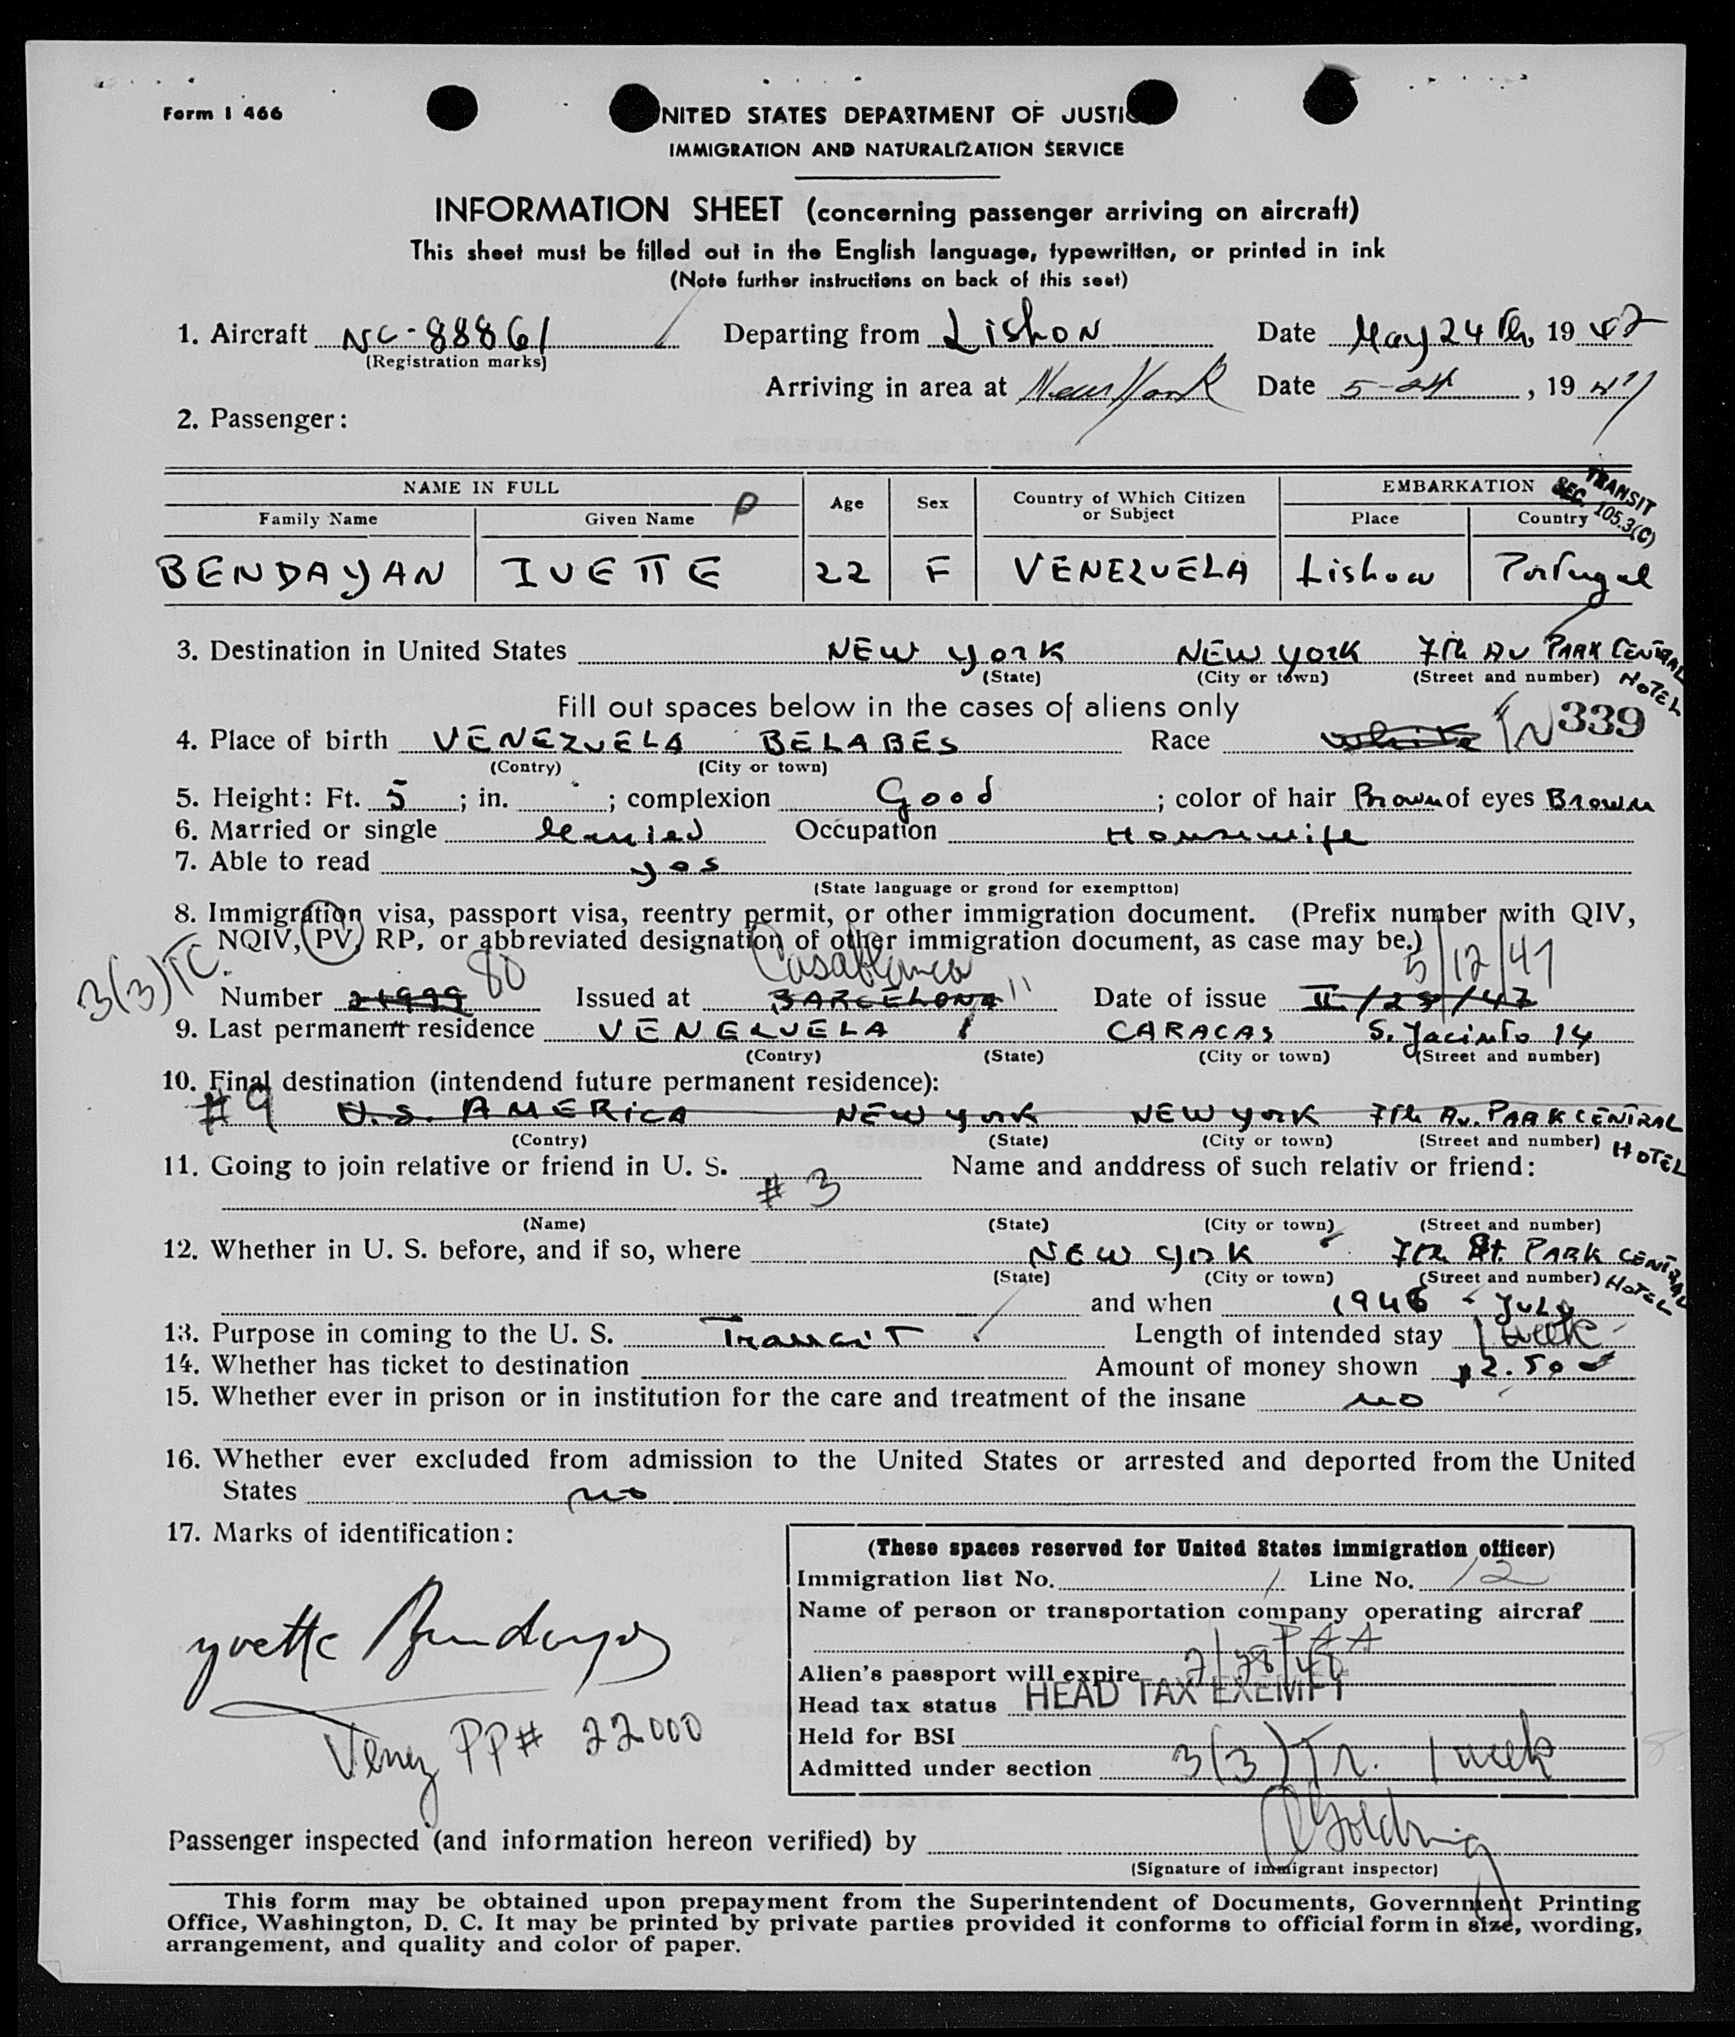 Form I 466
UNITED STATES DEPARTMENT OF JUSTIC
IMMIGRATION AND NATURALIZATION SERVICE
INFORMATION SHEET (concerning passenger arriving on aircraft)
This sheet must be filled out in the English language, typewritten, or printed in ink
(Note further instructions on back of this seet)
1. Aircraft NC-88861 Departing from Lisbon Date May 24th, 1947
(Registration marks)
Arriving in area at New York Date 5-24, 1947
2. Passenger:
TRANSIT
SEC. 105.3(C)
NAME IN FULL Age Sex Country of Which Citizen or Subject EMBARKATION
Family Name Given Name Place Country
BENDAYAN IVETTE 22 F VENEZUELA Lisbon Portugal
3. Destination in United States NEW YORK NEW YORK 7th AV PARK CENTRAL HOTEL
(State) (City or town) (Street and number)
Fill out spaces below in the cases of aliens only
339
4. Place of birth VENEZUELA BELABES Race White
(Contry) (City or town)
5. Height: Ft. 5; in. ; complexion Good; color of hair Brown of eyes Brown
6. Married or single Married Occupation Housewife
7. Able to read yes
(State language or grond for exemption)
8. Immigration visa, passport visa, reentry permit, or other immigration document. (Prefix number with QIV,
NQIV, PV, RP, or abbreviated designation of other immigration document, as case may be.)
3(3)TC. 80 Casablanca 5/12/47
Number 21999 Issued at BARCELONA Date of issue II/28/47
9. Last permanent residence VENEZUELA CARACAS S. Jacinto 14
(Contry) (State) (City or town) (Street and number)
10. Final destination (intendend future permanent residence):
#9 U.S. AMERICA NEW YORK NEW YORK 7th Av. PARK CENTRAL HOTEL
(Contry) (State) (City or town) (Street and number)
11. Going to join relative or friend in U. S. Name and anddress of such relativ or friend:
#3
(Name) (State) (City or town) (Street and number)
12. Whether in U. S. before, and if so, where NEW YORK 7th St. PARK CENTRAL HOTEL
(State) (City or town) (Street and number)
and when 1946 - July
13. Purpose in coming to the U. S. Transit Length of intended stay 1 week
14. Whether has ticket to destination Amount of money shown $2.50
15. Whether ever in prison or in institution for the care and treatment of the insane no
16. Whether ever excluded from admission to the United States or arrested and deported from the United
States no
17. Marks of identification:
(These spaces reserved for United States immigration officer)
Immigration list No. 1 Line No. 12
Name of person or transportation company operating aircraf
PAA
Alien's passport will expire 2/28/48
Head tax status HEAD TAX EXEMPT
Held for BSI
Admitted under section 3(3) Tr. 1 week
yvette Bendayan
Venez PP# 22000
Passenger inspected (and information hereon verified) by
(Signature of immigrant inspector)
This form may be obtained upon prepayment from the Superintendent of Documents, Government Printing
Office, Washington, D. C. It may be printed by private parties provided it conforms to official form in size, wording,
arrangement, and quality and color of paper.